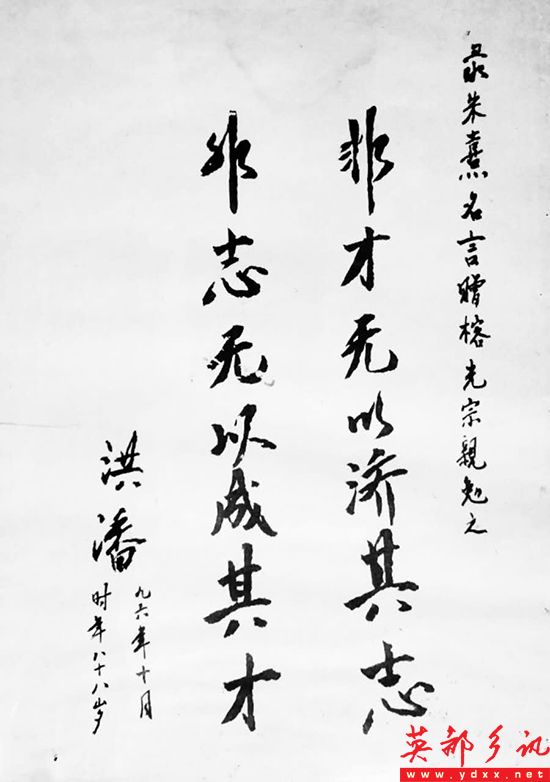 录朱熹名言赠榕光宗親勉之
非才无以济其志
非志无以成其才
洪潘
九六年十月
时年八十八岁
英都乡讯
www.ydxx.net